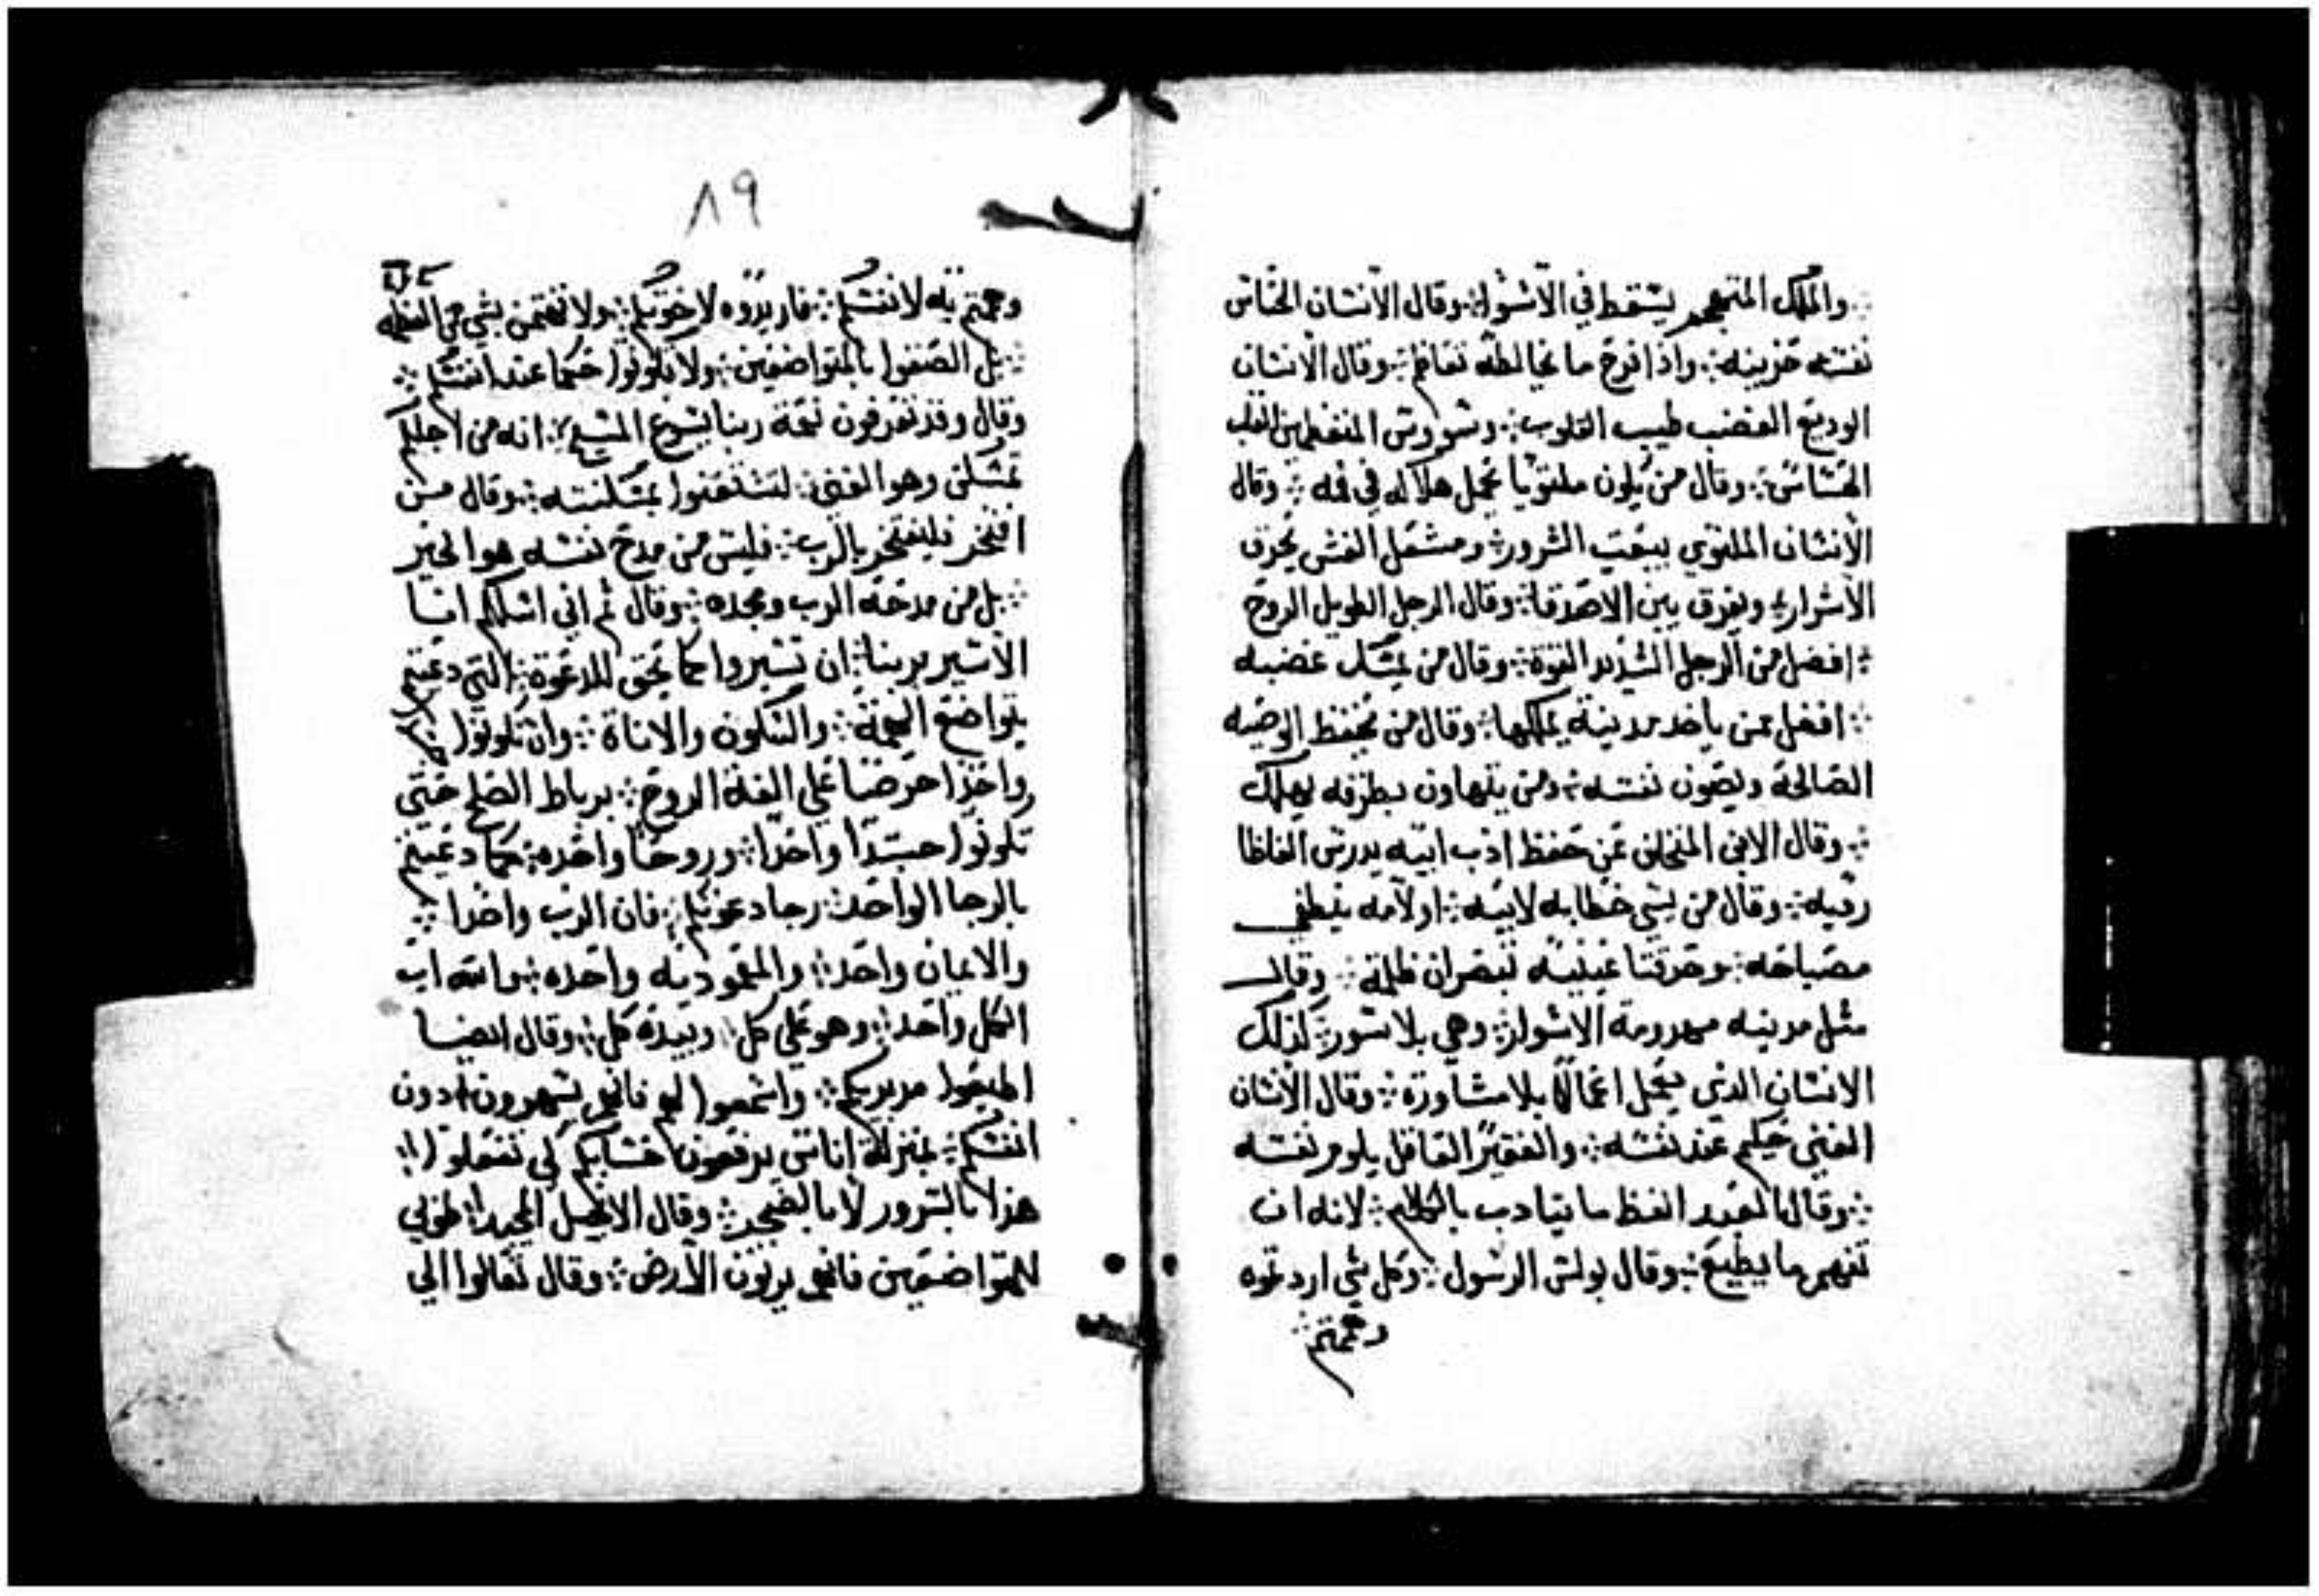 والملك المتجهم يسقط في الاسوا ⁘ وقال الانسان الحساس
نفسه حزينه ⁘ واذا فرح ما يخالطه تعاظم ⁘ وقال الانسان
الوديع الغضب طبيب القلوب ⁘ وسووس القلب
الحساس ⁘ وقال من يكون ملتويا عجل هلاكه في فمه ⁘ وقال
الانسان الملتوي يبعت الشرور ⁘ ومشعل الغش يحرق
الاشرار ⁘ ويفرق بين الاصدقا ⁘ وقال الرجل الطويل الروح
⁘ افضل من الرجل الشديد القوة ⁘ وقال من يمسك غضبه
⁘ افضل ممن ياخد مدينة يملكها ⁘ وقال من يحفظ الوصيه
الصالحة ويصون نفسه ⁘ ومن يتهاون بطرقه يهلك
⁘ وقال الابن المتخلي عن حفظ ادب ابيه يدرس الفاظا
رديه ⁘ وقال من يسي خطابه لابيه ⁘ او لامه ينطفي
مصباحه ⁘ وحدقتا عينيه تبصران ظلمة ⁘ وقال
مثل مدينه مهدومة الاسوار ⁘ وهي بلا سور ⁘ كذلك
الانسان الذي يعمل اعمالا بلا مشاورة ⁘ وقال الانسان
الغني حكيم عند نفسه ⁘ والفقير العاقل يلوم نفسه
⁘ وقال العبد الفظ ما يتادب بالكلام ⁘ لانه ان
تفهم ما يطيع ⁘ وقال بولس الرسول ⁘ وكل شي اردتموه
وهممتم ⁘
٨٩
وهممتم به لانفسكم ⁘ فاريدوه لاخوتكم ⁘ ولا تهتمن بشي من العظمه
⁘ بل الصقوا بالمتواضعين ⁘ ولا تكونوا حكما عند انفسكم ⁘
وقال وقد تعرفون نعمة ربنا يسوع المسيح ⁘ انه من اجلكم
تمسكن وهو الغني ⁘ لتستغنوا بمسكنته ⁘ وقال من
افتخر فليفتخر بالرب ⁘ فليس من مدح نفسه هو الخير
⁘ بل من مدحه الرب ومجده ⁘ وقال ثم اني اسلكم انا
الاسير بربنا ⁘ ان تسيروا كما يحق للدعوة ⁘ التي دعيتم
بتواضع الهمة ⁘ والسكون والاناة ⁘ وان تكونوا
واحدا حرصا علي الفة الروح ⁘ برباط الصلح حتي
تكونوا جسدا واحدا ⁘ وروحا واحده ⁘ كما دعيتم
بالرجا الواحد ⁘ رجا دعوتكم ⁘ فان الرب واحدا ⁘
والايمان واحد ⁘ والمعموديه واحده ⁘ والله اب
الكل واحد ⁘ وهو علي كل ⁘ وبيده كل ⁘ وقال ايضا
اطيعوا مدبريكم ⁘ واسمعوا لهم فانهم يسهرون دون
انفسكم ⁘ بمنزلة اناس يرفعون حسابكم كي تفعلوا ⁘
هذا بالسرور لا بالضجر ⁘ وقال الانجيل المجيد ⁘ طوبي
للمتواضعين فانهم يرتون الارض ⁘ وقال تعالوا الي